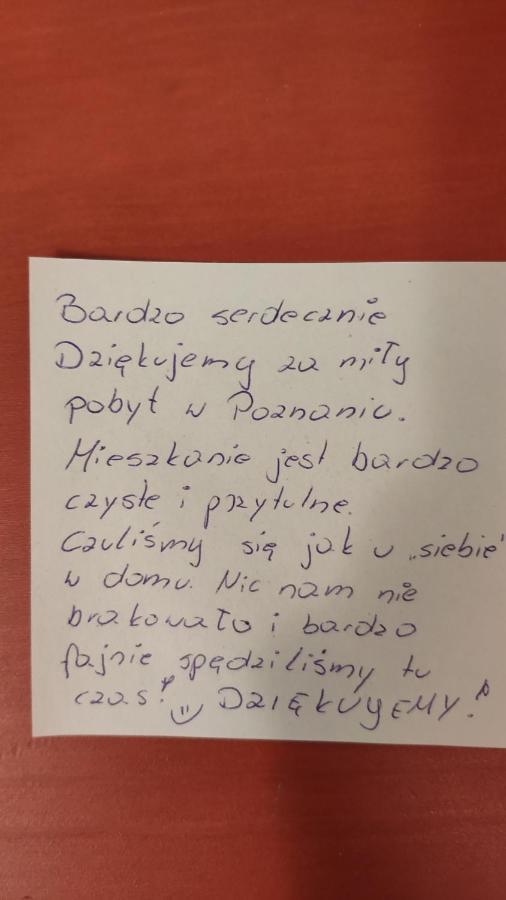 Bardzo serdecznie
Dziękujemy za miły
pobyt w Poznaniu.
Mieszkanie jest bardzo
czyste i przytulne.
Czuliśmy się jak u „siebie"
w domu. Nic nam nie
brakowało i bardzo
fajnie spędziliśmy tu
czas! :) DZIĘKUJEMY!